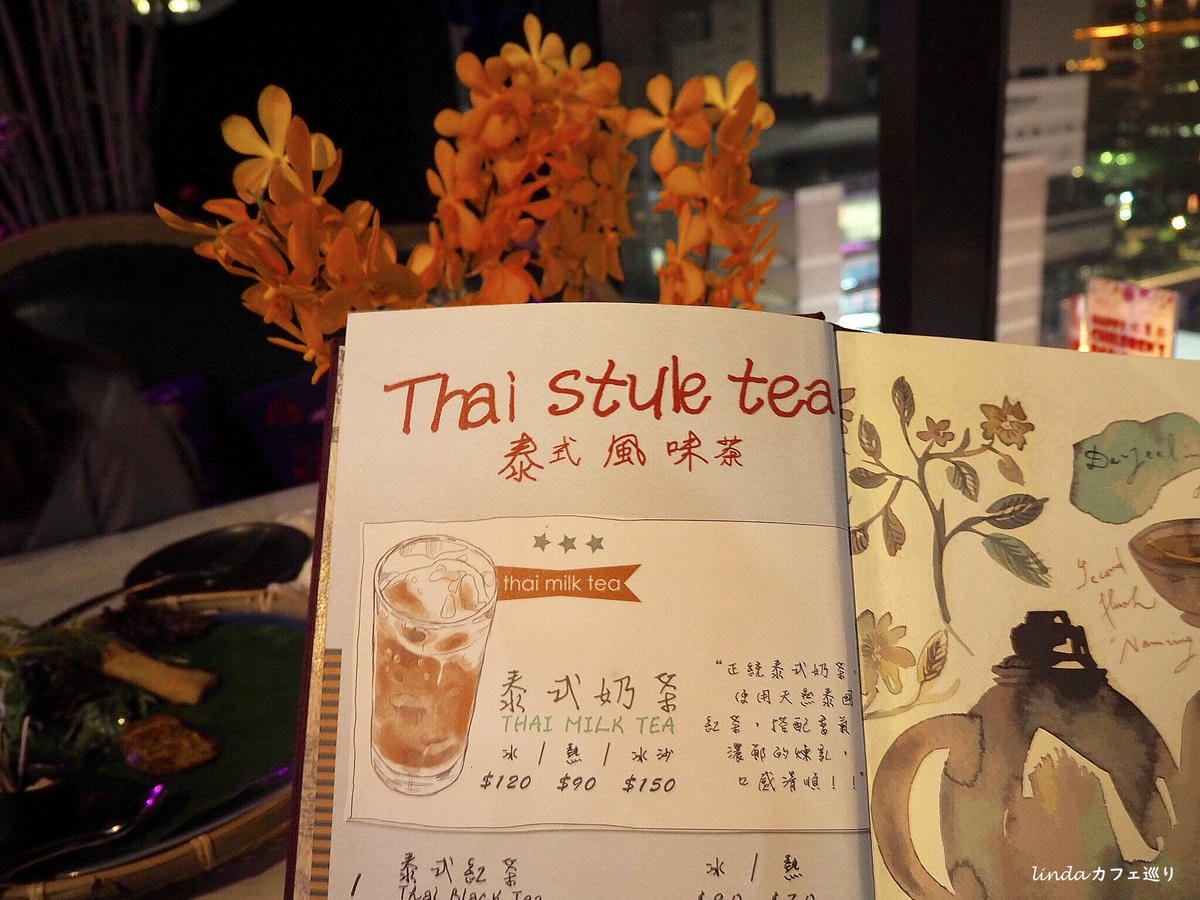 Thai style tea
泰式風味茶
thai milk tea
泰式奶茶
THAI MILK TEA
冰 / 熱 / 冰沙
$120 $90 $150
"正統泰式奶茶,
使用天然泰國
紅茶,搭配香氣
濃郁的煉乳,
口感滑順!!"
泰式紅茶
冰 / 熱
Thai Black Tea
Second
flush
Naming
lindaカフェ巡り